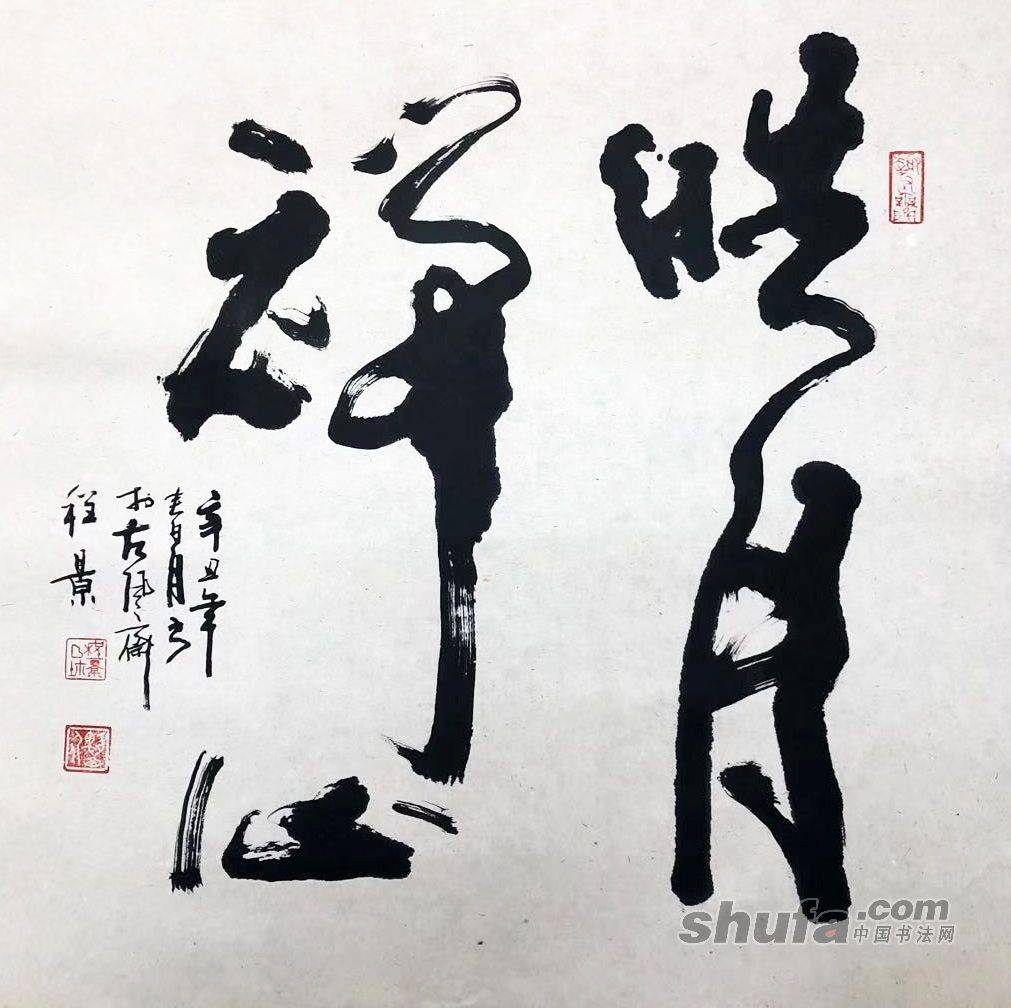 皓月
禅心
辛丑年
春月书
于古风斋
程景
shufa.com
中国书法网